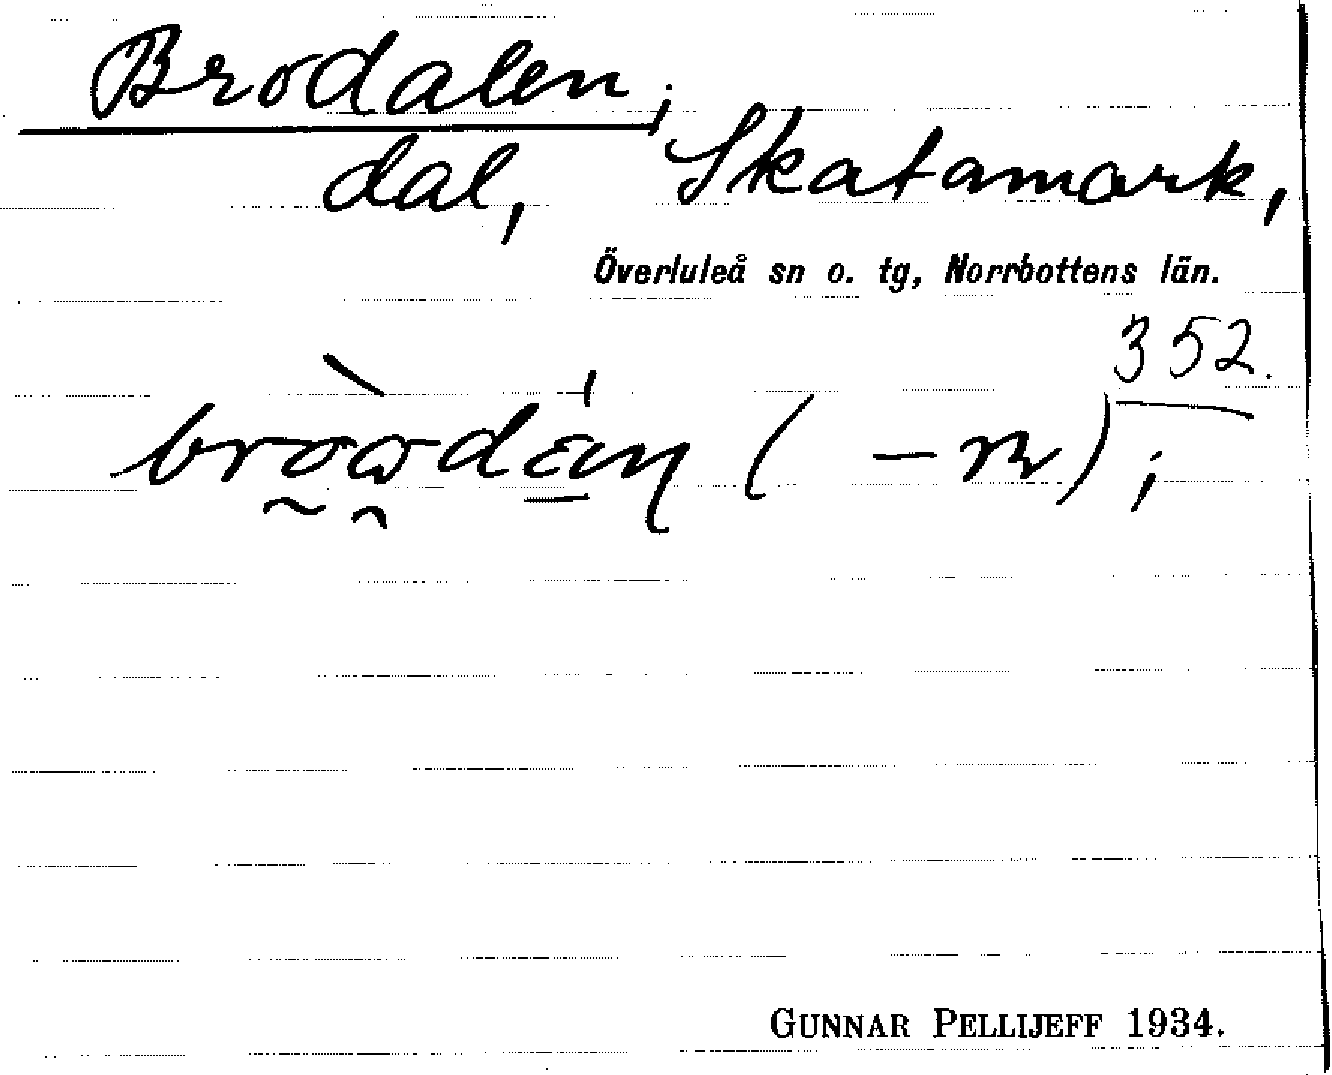 Brodalen;
dal, Skatamark,
Överluleå sn o. tg, Norrbottens län.
352.
( -n);
GUNNAR PELLIJEFF 1934.